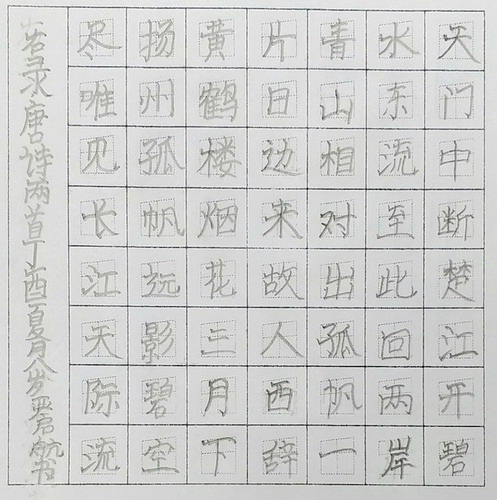 天门中断楚江开碧
水东流至此回两岸
青山相对出孤帆一
片日边来故人西辞
黄鹤楼烟花三月下
扬州孤帆远影碧空
尽唯见长江天际流
录唐诗两首丁酉夏月八岁严航书